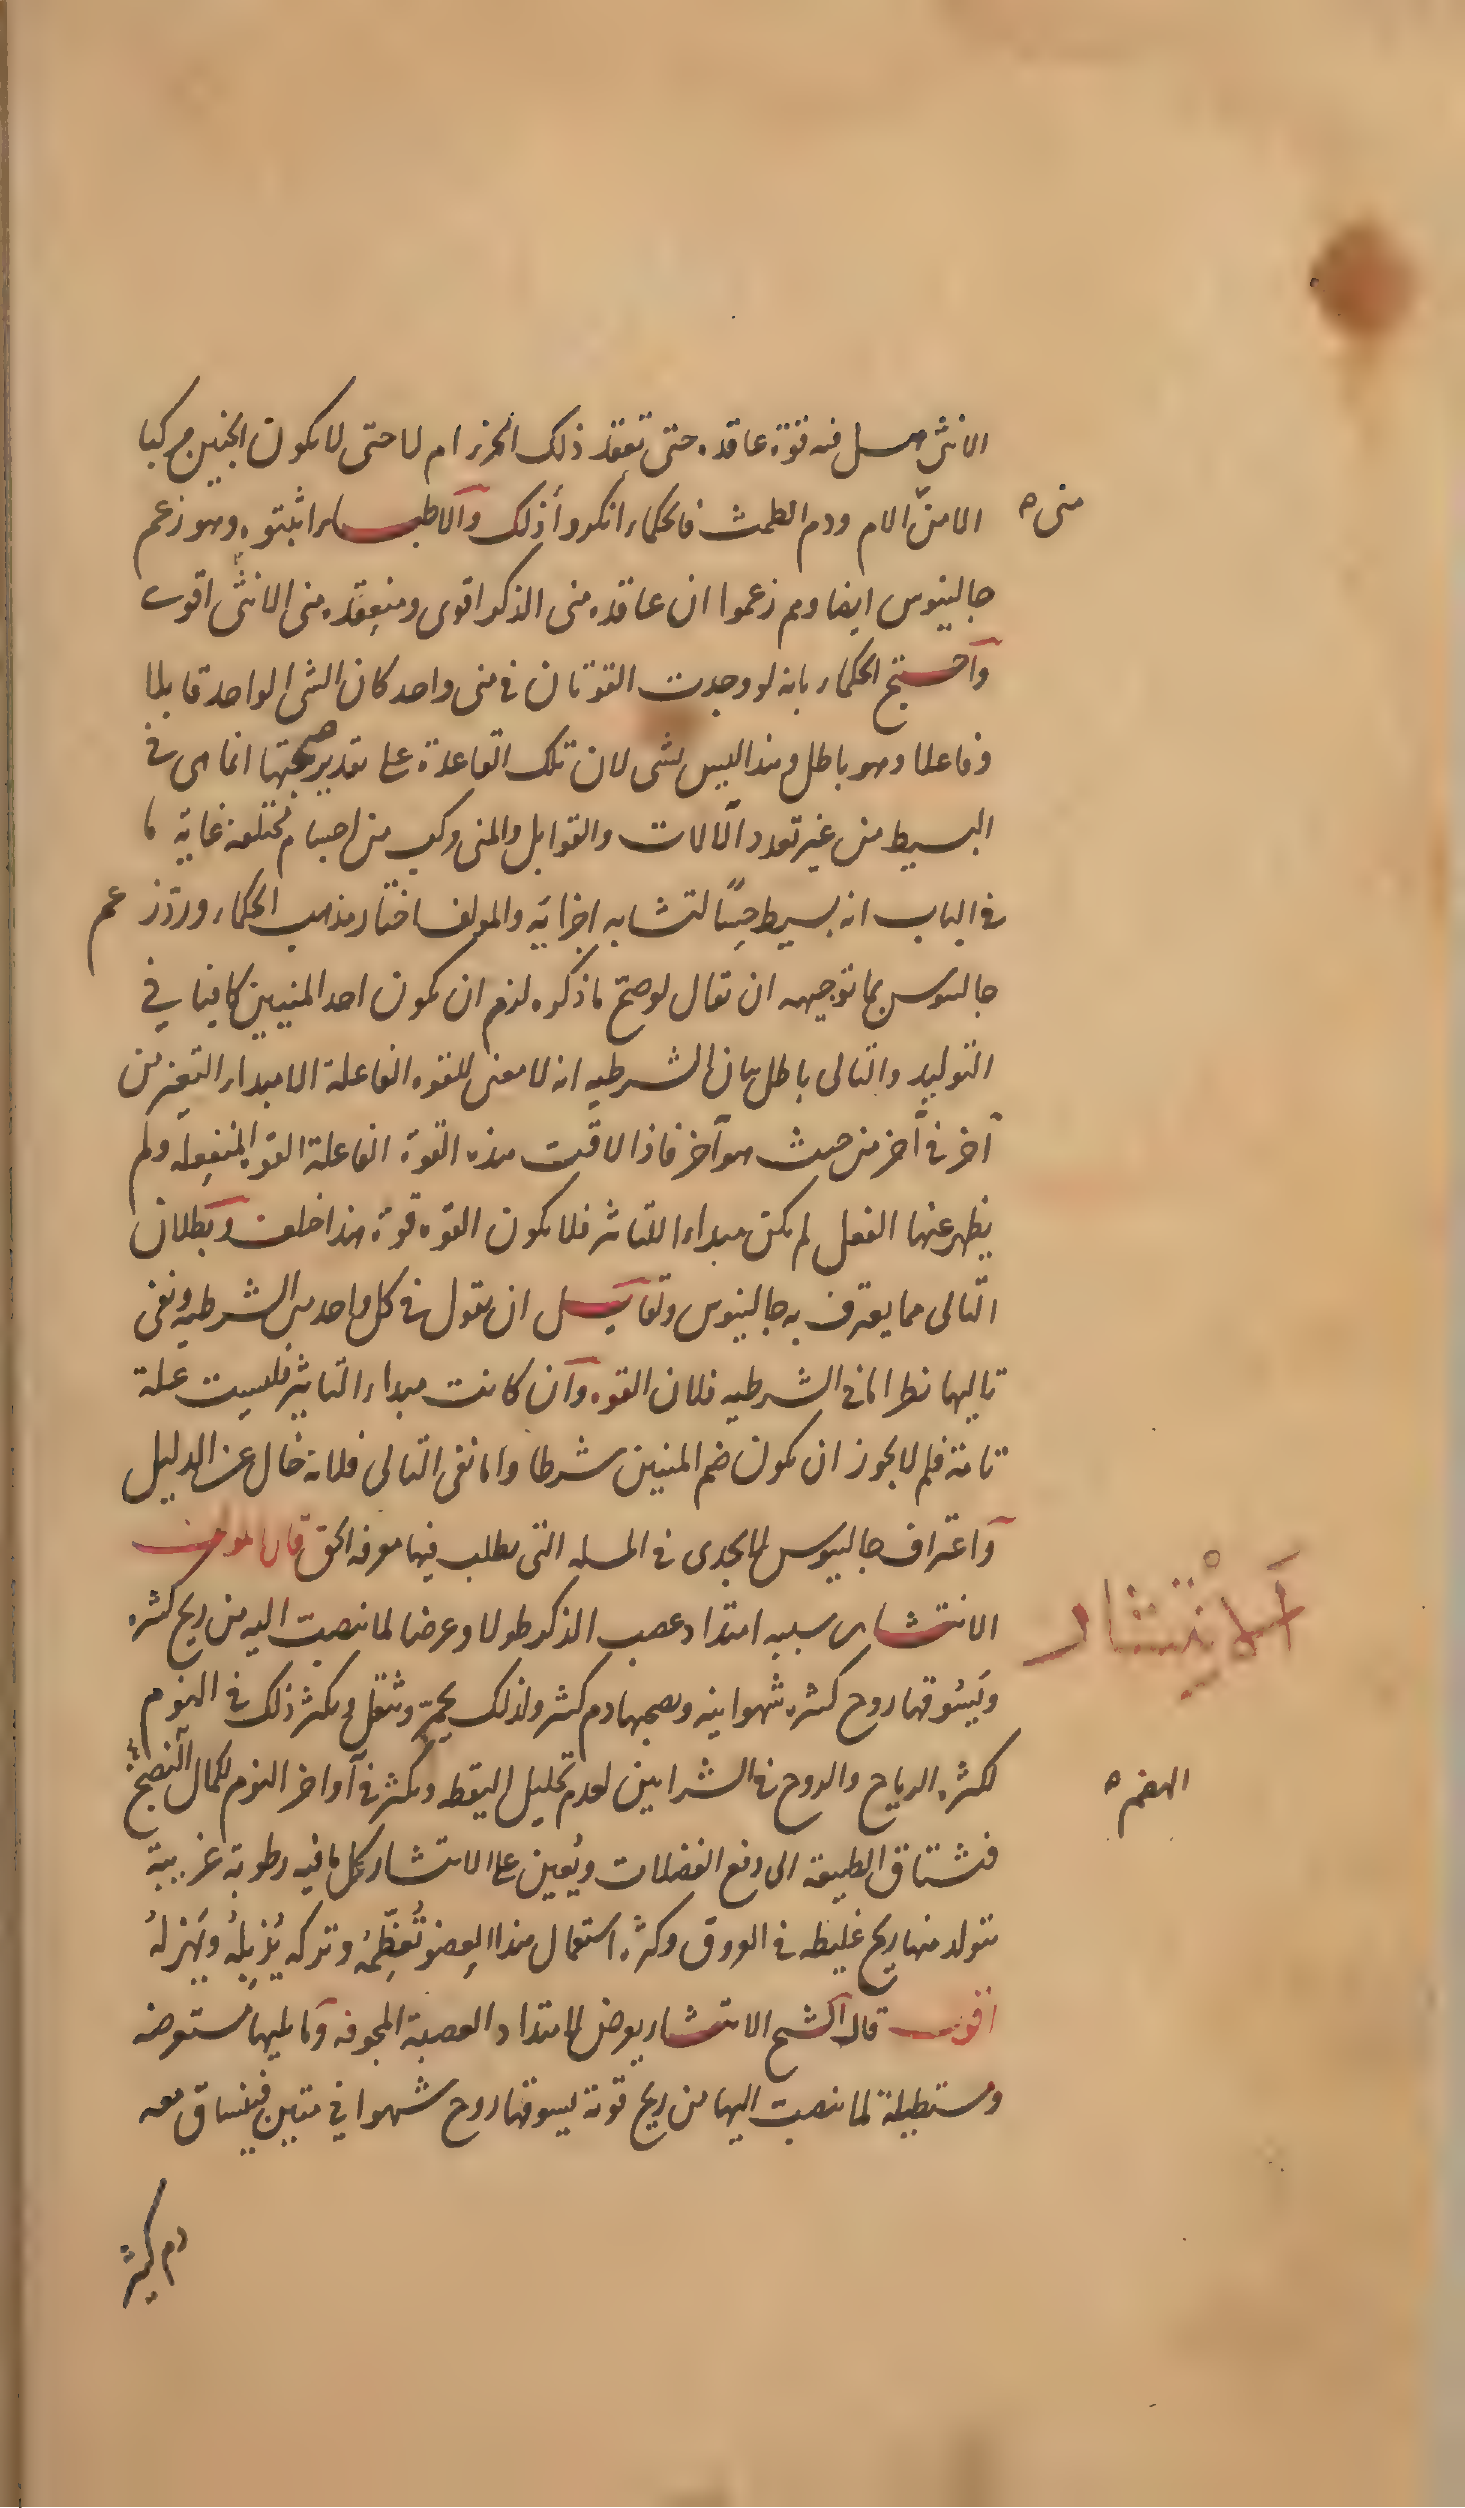 الانثى هل فيه قوة عاقدة حتى تعقد ذلك الجزء ام لا حتى لا يكون الجنين مركبا
منى ه
الا من الام ودم الطمث فالحكماء انكروا ذلك والاطباء اثبتوه وهو زعم
جالينوس ايضا وهم زعموا ان عاقدة منى الذكر اقوى ومنعقدة منى الانثى اقوى
واحتج الحكماء بانه لو وجدت القوتان فى منى واحد كان الشى الواحد قابلا
وفاعلا وهو باطل وهذا ليس بشى لان تلك القاعدة على تقدير صحتها انما هى فى
البسيط من غير تعدد الآلات والقوابل والمنى مركب من اجسام مختلفة غاية ما
فى الباب انه بسيط حسًّا لتشابه اجزائه والمولف اختار مذهب الحكماء ورد زعم
جالينوس بما توجيهه ان يقال لو صح ما ذكره لزم ان يكون احد المنيين كافيا فى
التوليد والتالى باطل بيان الشرطيه انه لا معنى للقوه الفاعلة الا مبداء التغير من
آخر فى آخر من حيث هو آخر فاذا لاقت هذه القوة الفاعلة القوه المنفعله ولم
يظهر عنها الفعل لم يكن مبداء للتاثير فلا يكون القوه قوة هذا خلف وبطلان
التالى مما يعترف به جالينوس ولقايل ان يقول فى كل واحد من الشرطيه ونفى
تاليها نظر اما فى الشرطيه فلان القوه وان كانت مبداء التاثير فليست علة
تامة فلم لا يجوز ان يكون ضم المنيين شرطا واما نفى التالى فلانه خال عن الدليل
واعتراف جالينوس لا يجدى فى المسله التى يطلب فيها معرفه الحق قال المولف
الانتشار
الانتشار سببه امتداد عصب الذكر طولا وعرضا لما ينصب اليه من ريح كثره
ويَسُوقها روح كثره شهوانيه ويصحبها دم كثير ولذلك يحمرّ ويثقل ويكثر ذلك فى النوم
لكثره الرياح والروح فى الشرايين لعدم تحليل اليقظه ويكثر فى آواخر النوم لكمال النضج
الهضم ه
فتشتاق الطبيعة الى دفع الفضلات ويُعين على الانتشار كل ما فيه رطوبة غريبة
تتولد منها ريح غليظه فى العروق وكثره استعمال هذا العِضو تُعَظِّمهُ وتركه يُذبِلهُ ويَهزلهُ
اقول قال الشيخ الانتشار يعرض لامتداد العصبة المجوفه وما يليها مستعرضه
ومستطيلة لما ينصب اليها من ريح قوية يسوقها روح شهوانى متين فينساق معه
دم كثير